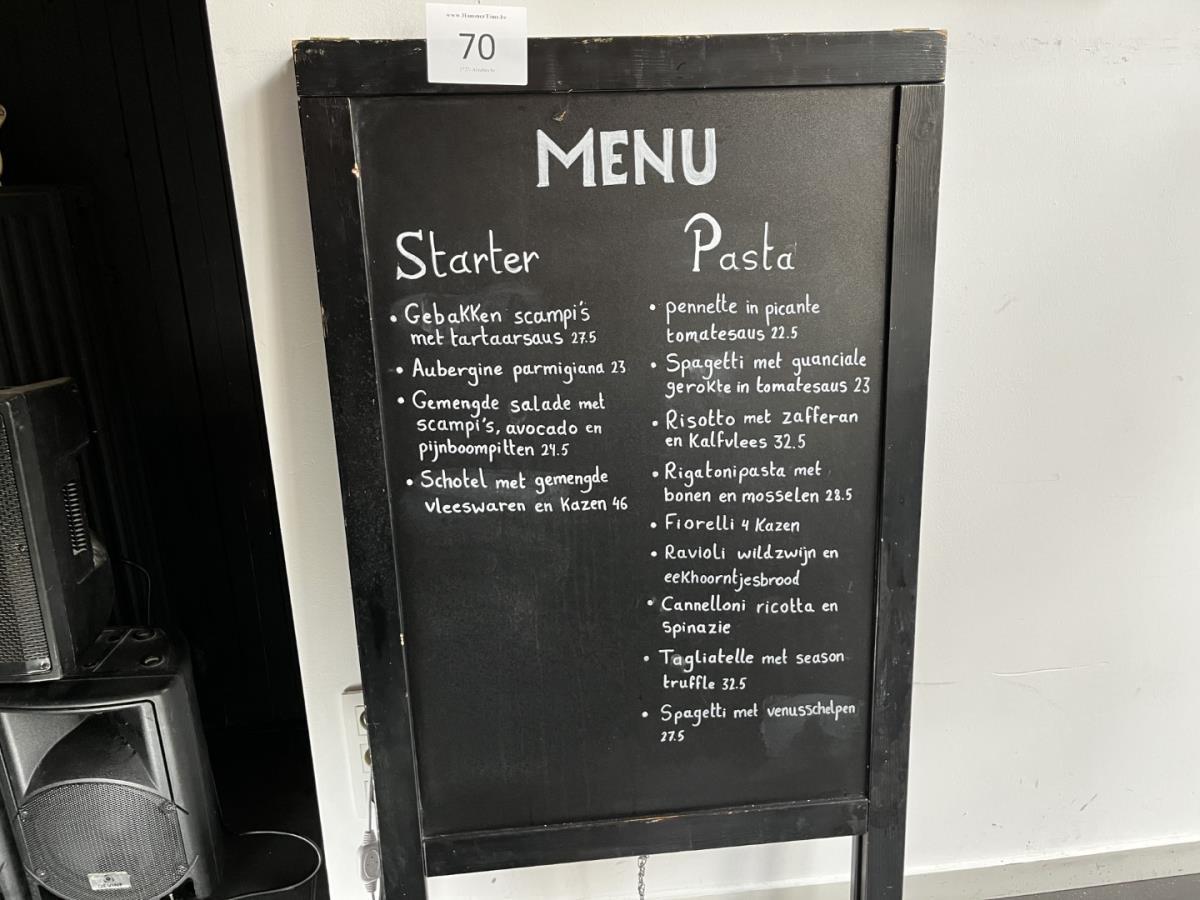 www.HammerTime.be
70
MENU
Starter
• Gebakken scampi's
met tartaarsaus 27.5
• Aubergine parmigiana 23
• Gemengde salade met
scampi's, avocado en
pijnboompitten 24.5
• Schotel met gemengde
vleeswaren en Kazen 46
Pasta
• pennette in picante
tomatesaus 22.5
• Spagetti met guanciale
gerokte in tomatesaus 23
• Risotto met zafferan
en Kalfvlees 32.5
• Rigatonipasta met
bonen en mosselen 28.5
• Fiorelli 4 Kazen
• Ravioli wildzwijn en
eekhoorntjesbrood
• Cannelloni ricotta en
Spinazie
• Tagliatelle met season
truffle 32.5
• Spagetti met venusschelpen
27.5